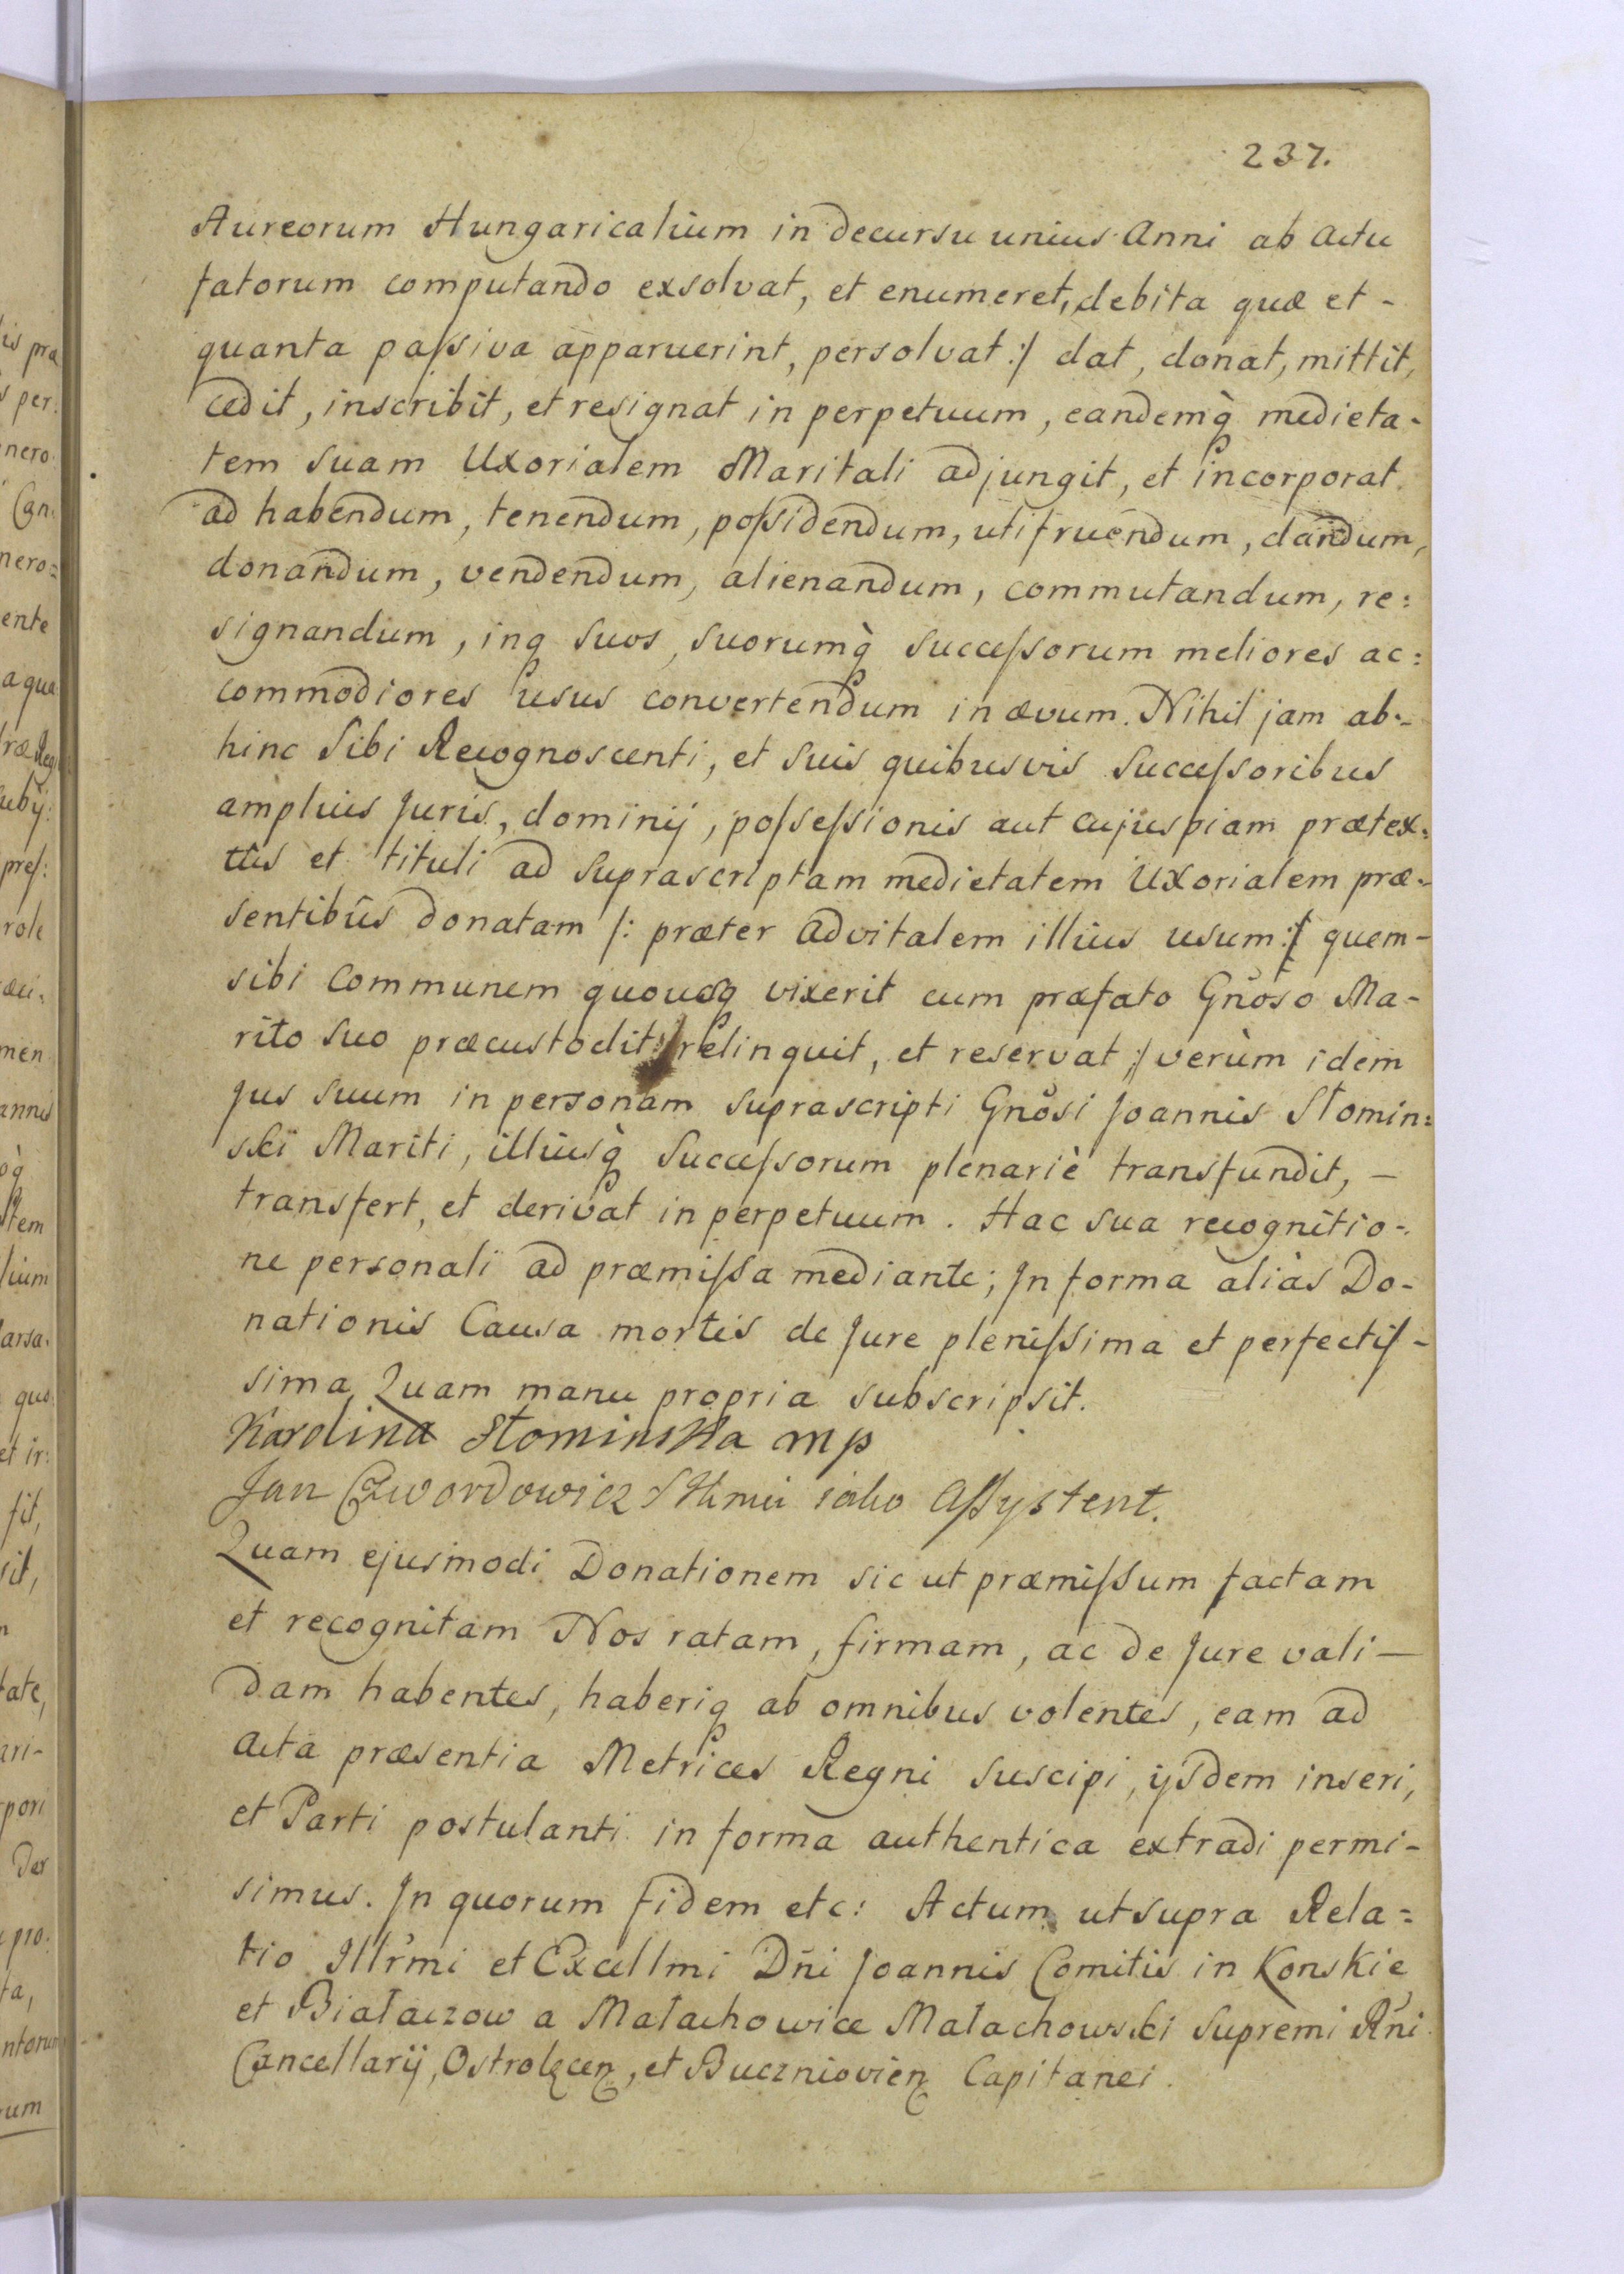 237.
Aureorum Hungaricalium in decursu unius Anni ab actu
fatorum computando exsolvat, et enumeret, debita quæ et -
quanta paſsiva apparuerint, persolvat :/ dat, donat, mittit,
cedit, inscribit, et resignat in perpetuum, eandemq̀ medieta-
tem suam Uxorialem Maritali adjungit, et incorporat
ad habendum, tenendum, poſsidendum, utifruendum, dandum,
donandum, vendendum, alienandum, commutandum, re:
signandum, inq suos, suorumq̀ succeſsorum meliores ac:
commodiores usus convertendum in ævum. Nihil jam ab-
hinc Sibi Recognoscenti, et suis quibusvis succeſsoribus
amplius Juris, dominij, poſseſsionis aut cujuspiam prætex:
tûs et tituli ad suprascriptam medietatem Uxorialem præ-
sentibûs donatam /: præter advitalem illius usum :/ quem-
sibi communem quousq vixerit cum præfato Gñoso Ma-
rito suo præcustodit, relinquit, et reservat :/ verùm idem
jus suum in personam suprascripti Gñosi Joannis Słomin:
ski Mariti, illiusq̀ Succeſsorum plenariè transfundit, —
transfert, et derivat in perpetuum. Hac sua recognitio-
ne personali ad præmiſsa mediante; Jn forma aliàs Do-
nationis Causa mortis de Jure pleniſsima et perfectiſ-
sima, Quam manu propria subscripsit.
Karolina Słominska mp
Jan Czwordowicz jako Aſsystent.
Quam ejusmodi Donationem sic ut præmiſsum factam
et recognitam Nos ratam, firmam, ac de Jure vali —
dam habentes, haberiq ab omnibus volentes, eam ad
Acta præsentia Metrices Regni suscipi, ijsdem inseri,
et Parti postulanti in forma authentica extradi permi-
simus. Jn quorum fidem etc: Actum ut supra Rela=
tio Jllr̃mi et Excellmi Dñi Joannis Comitis in Konskie
et Białaczow a Małachowice Małachowski Supremi Rñi
Cancellarij, Ostrolęcen, et Buczniovien Capitanei.